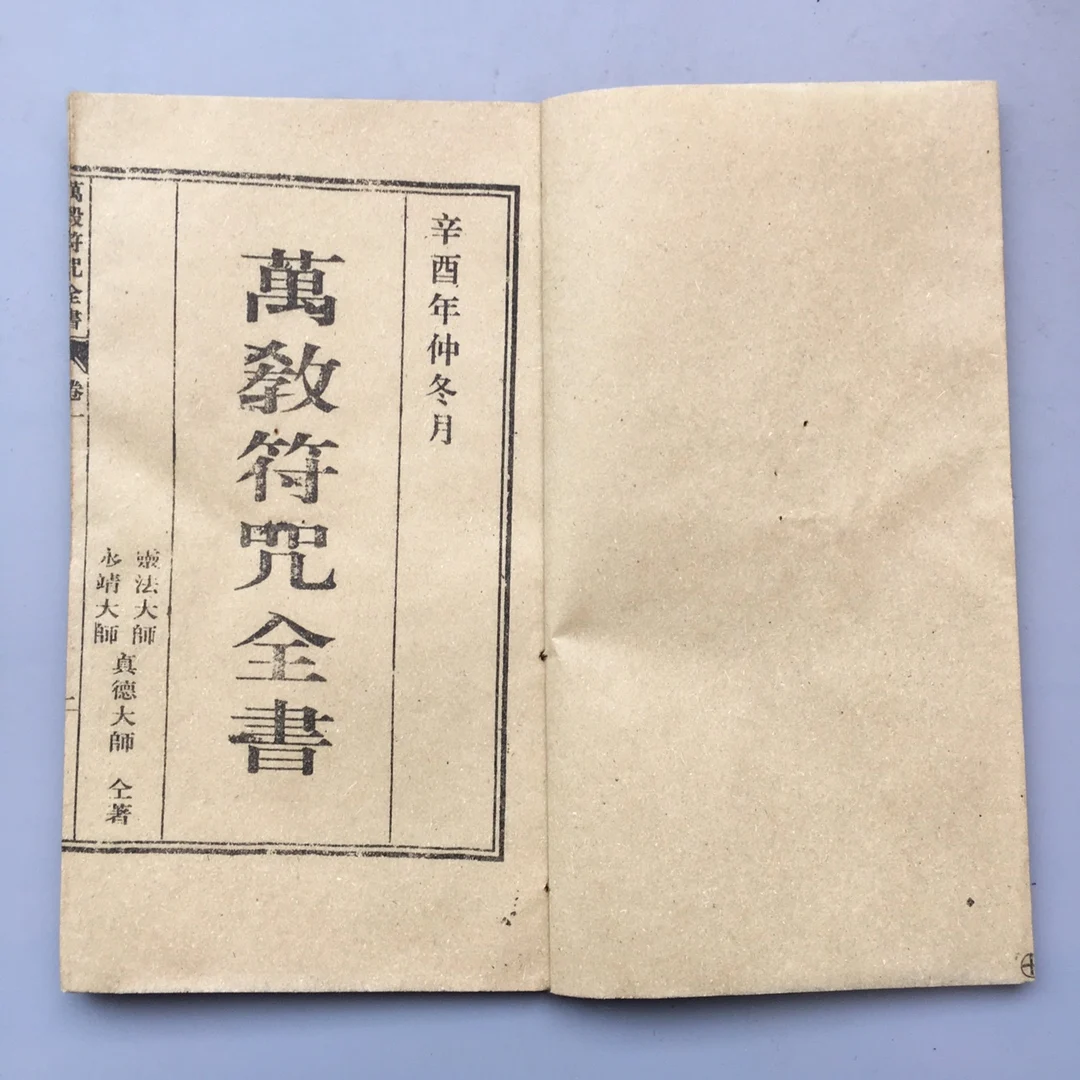 辛酉年仲冬月
萬敎符咒全書
靈法大師
永靖大師
真德大師
仝著
萬敎符咒全書
卷一